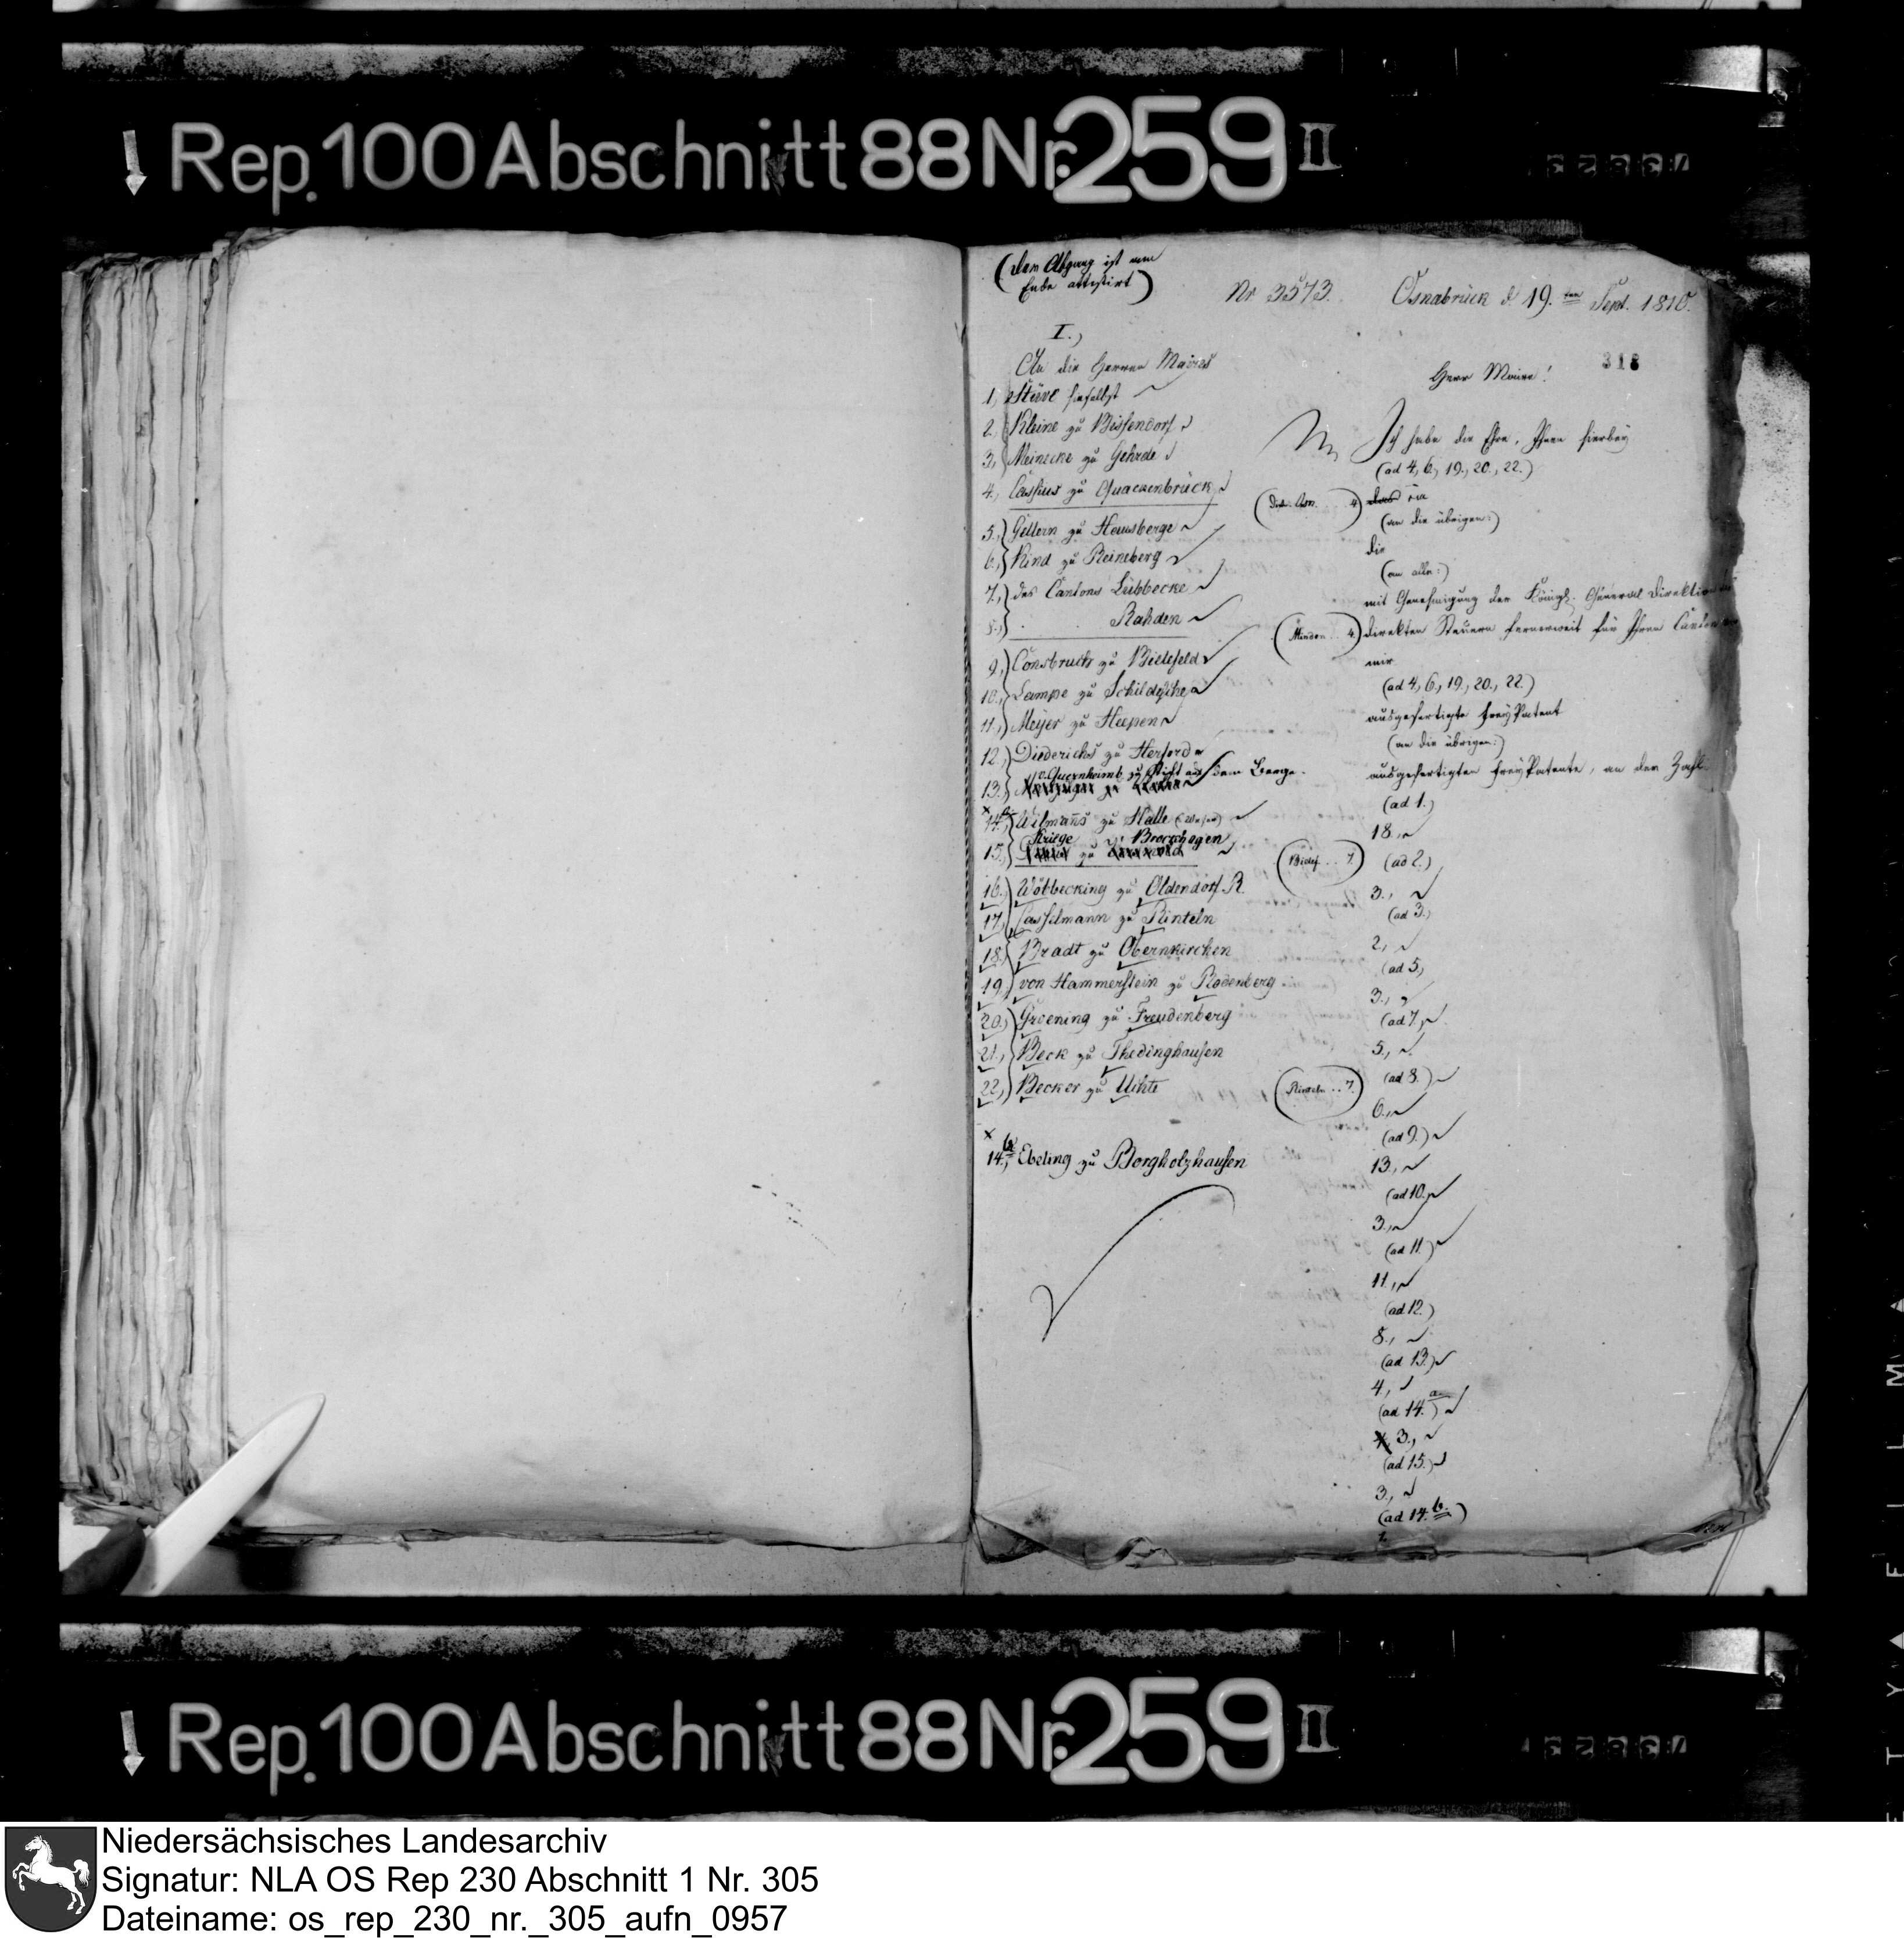 Rep. 100 Abschnitt 88 Nr. 259 II
(Der Abgang ist am
Ende attestirt)
Nr 3573.
Osnabrück d 19.ten Sept. 1810.
318
I.,
An die Herren Maires
1, Stüve hieselbst
2, Kleine zu Bissendorf
3, Meinecke zu Gehrde
4, Cassius zu Quackenbrück
5., Gellern zu Hausberge
6., Kind zu Reineberg
7., des Cantons Lübbecke
8., Rahden
9., Consbruch zu Bielefeld
10., Lampe zu Schildesche
11., Meyer zu Heepen
12., Diederichs zu Herford
v. Quernheimb zu Stift auf dem Berge.
13.,
14.a Wilmans zu Halle (Weser)
Kriege Brockhagen
15., zu
16., Wöbbecking zu Oldendorf R.
17., Casselmann zu Rinteln
18., Bradt zu Obernkirchen
19., von Hammerstein zu Rodenberg
20., Groening zu Freudenberg
21., Beck zu Thedinghausen
22., Becker zu Uchte
14.b, Ebeling zu Borgholzhausen
(Dist. Osn. . . 4)
(Minden . . 4.)
(Bielef. . . 7.)
(Rinteln . . 7.)
Herr Maire!
Ich habe die Ehre, Ihnen hierbey
(ad 4, 6., 19., 20., 22.)
das ein
(an die übrigen:)
die
(an alle:)
mit Genehmigung der Königl. General Direktion der
direkten Steuern fernerweit für Ihren Canton von
mir
(ad 4, 6., 19., 20., 22.)
ausgefertigte freyPatent
(an die übrigen:)
ausgefertigten freyPatente, an der Zahl
(ad 1.)
18.,
(ad 2.)
3.,
(ad 3.)
2.,
(ad 5.)
3.,
(ad 7.)
5.,
(ad 8.)
6.,
(ad 9.)
13.,
(ad 10.)
3.,
(ad 11.)
11.,
(ad 12.)
8.,
(ad 13.)
4.,
(ad 14.a)
3.,
(ad 15.)
3.,
(ad 14.b.)
Rep. 100 Abschnitt 88 Nr. 259 II
Niedersächsisches Landesarchiv
Signatur: NLA OS Rep 230 Abschnitt 1 Nr. 305
Dateiname: os_rep_230_nr._305_aufn_0957